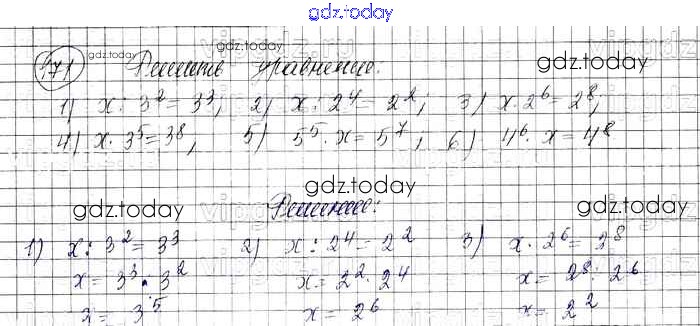 gdz.today
171 gdz.today gdz.today Решить уравнение: gdz.today
1) x : 3² = 3³, 2) x : 2⁴ = 2², 3) x · 2⁶ = 2⁸,
4) x · 3⁵ = 3⁸, 5) 5⁵ · x = 5⁷, 6) 4⁶ · x = 4⁸
gdz.today
gdz.today Решение: gdz.today
1) x : 3² = 3³ 2) x : 2⁴ = 2² 3) x · 2⁶ = 2⁸
x = 3³ · 3² x = 2² · 2⁴ x = 2⁸ : 2⁶
x = 3⁵ x = 2⁶ x = 2²